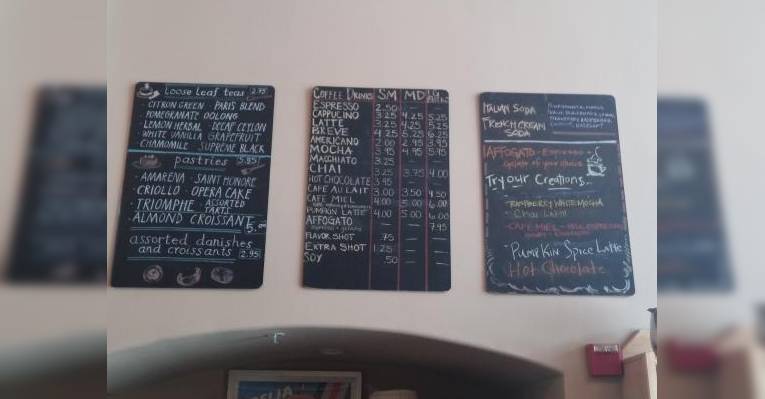 Loose Leaf teas 2.95
· CITRON GREEN · PARIS BLEND
· POMEGRANATE OOLONG
· LEMON HERBAL · DECAF CEYLON
· WHITE VANILLA GRAPEFRUIT
· CHAMOMILE · SUPREME BLACK
pastries 5.95
· AMARENA · SAINT HONORE
· CRIOLLO · OPERA CAKE
· TRIOMPHE · ASSORTED TARTS
· ALMOND CROISSANT 5.00
assorted danishes
and croissants 2.95
COFFEE DRINKS SM MD
ESPRESSO 2.50 — —
CAPPUCINO 3.25 4.25 5.25
LATTE 3.25 4.25 5.25
BREVE 4.25 5.25 6.25
AMERICANO 2.00 2.95 3.95
MOCHA 3.95 4.95 5.95
MACCHIATO 3.25
CHAI 3.25 3.75 4.00
HOT CHOCOLATE 3.95
CAFE AU LAIT 3.00 3.50 4.50
CAFE MIEL 4.00 5.00 6.00
PUMPKIN LATTE 4.00 5.00 6.00
AFFOGATO — — 7.95
FLAVOR SHOT .75
EXTRA SHOT 1.25
SOY .50
ITALIAN SODA
FRENCH CREAM
SODA
AFFOGATO - Espresso +
gelato of your choice
Try our Creations...
RASPBERRY WHITE MOCHA
- Chai Latte
- CAFE MIEL -
Pumpkin Spice Latte
Hot Chocolate